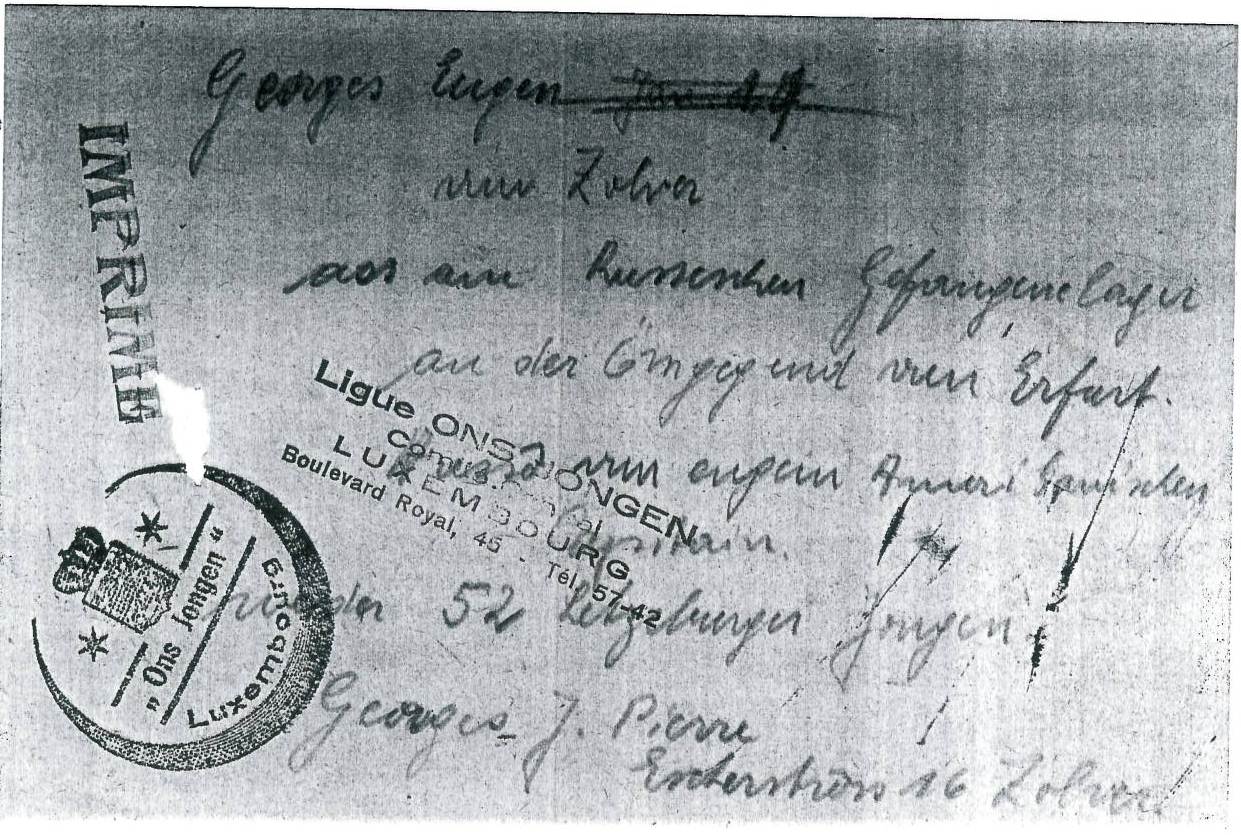 Georges Eugen
vun Zolver
aos em Russeschen Gefangenelager
an der Ömgegend vun Erfurt.
vun engem Amerikanischen
Kapitain.
52 Letzeburger Jongen
Georges J. Pierre
Escherstross 16 Zolver
IMPRIMÉ
Ligue ONS JONGEN
LUXEMBOURG
Boulevard Royal, 45 - Tél. 57-42
"Ons Jongen"
Luxembourg